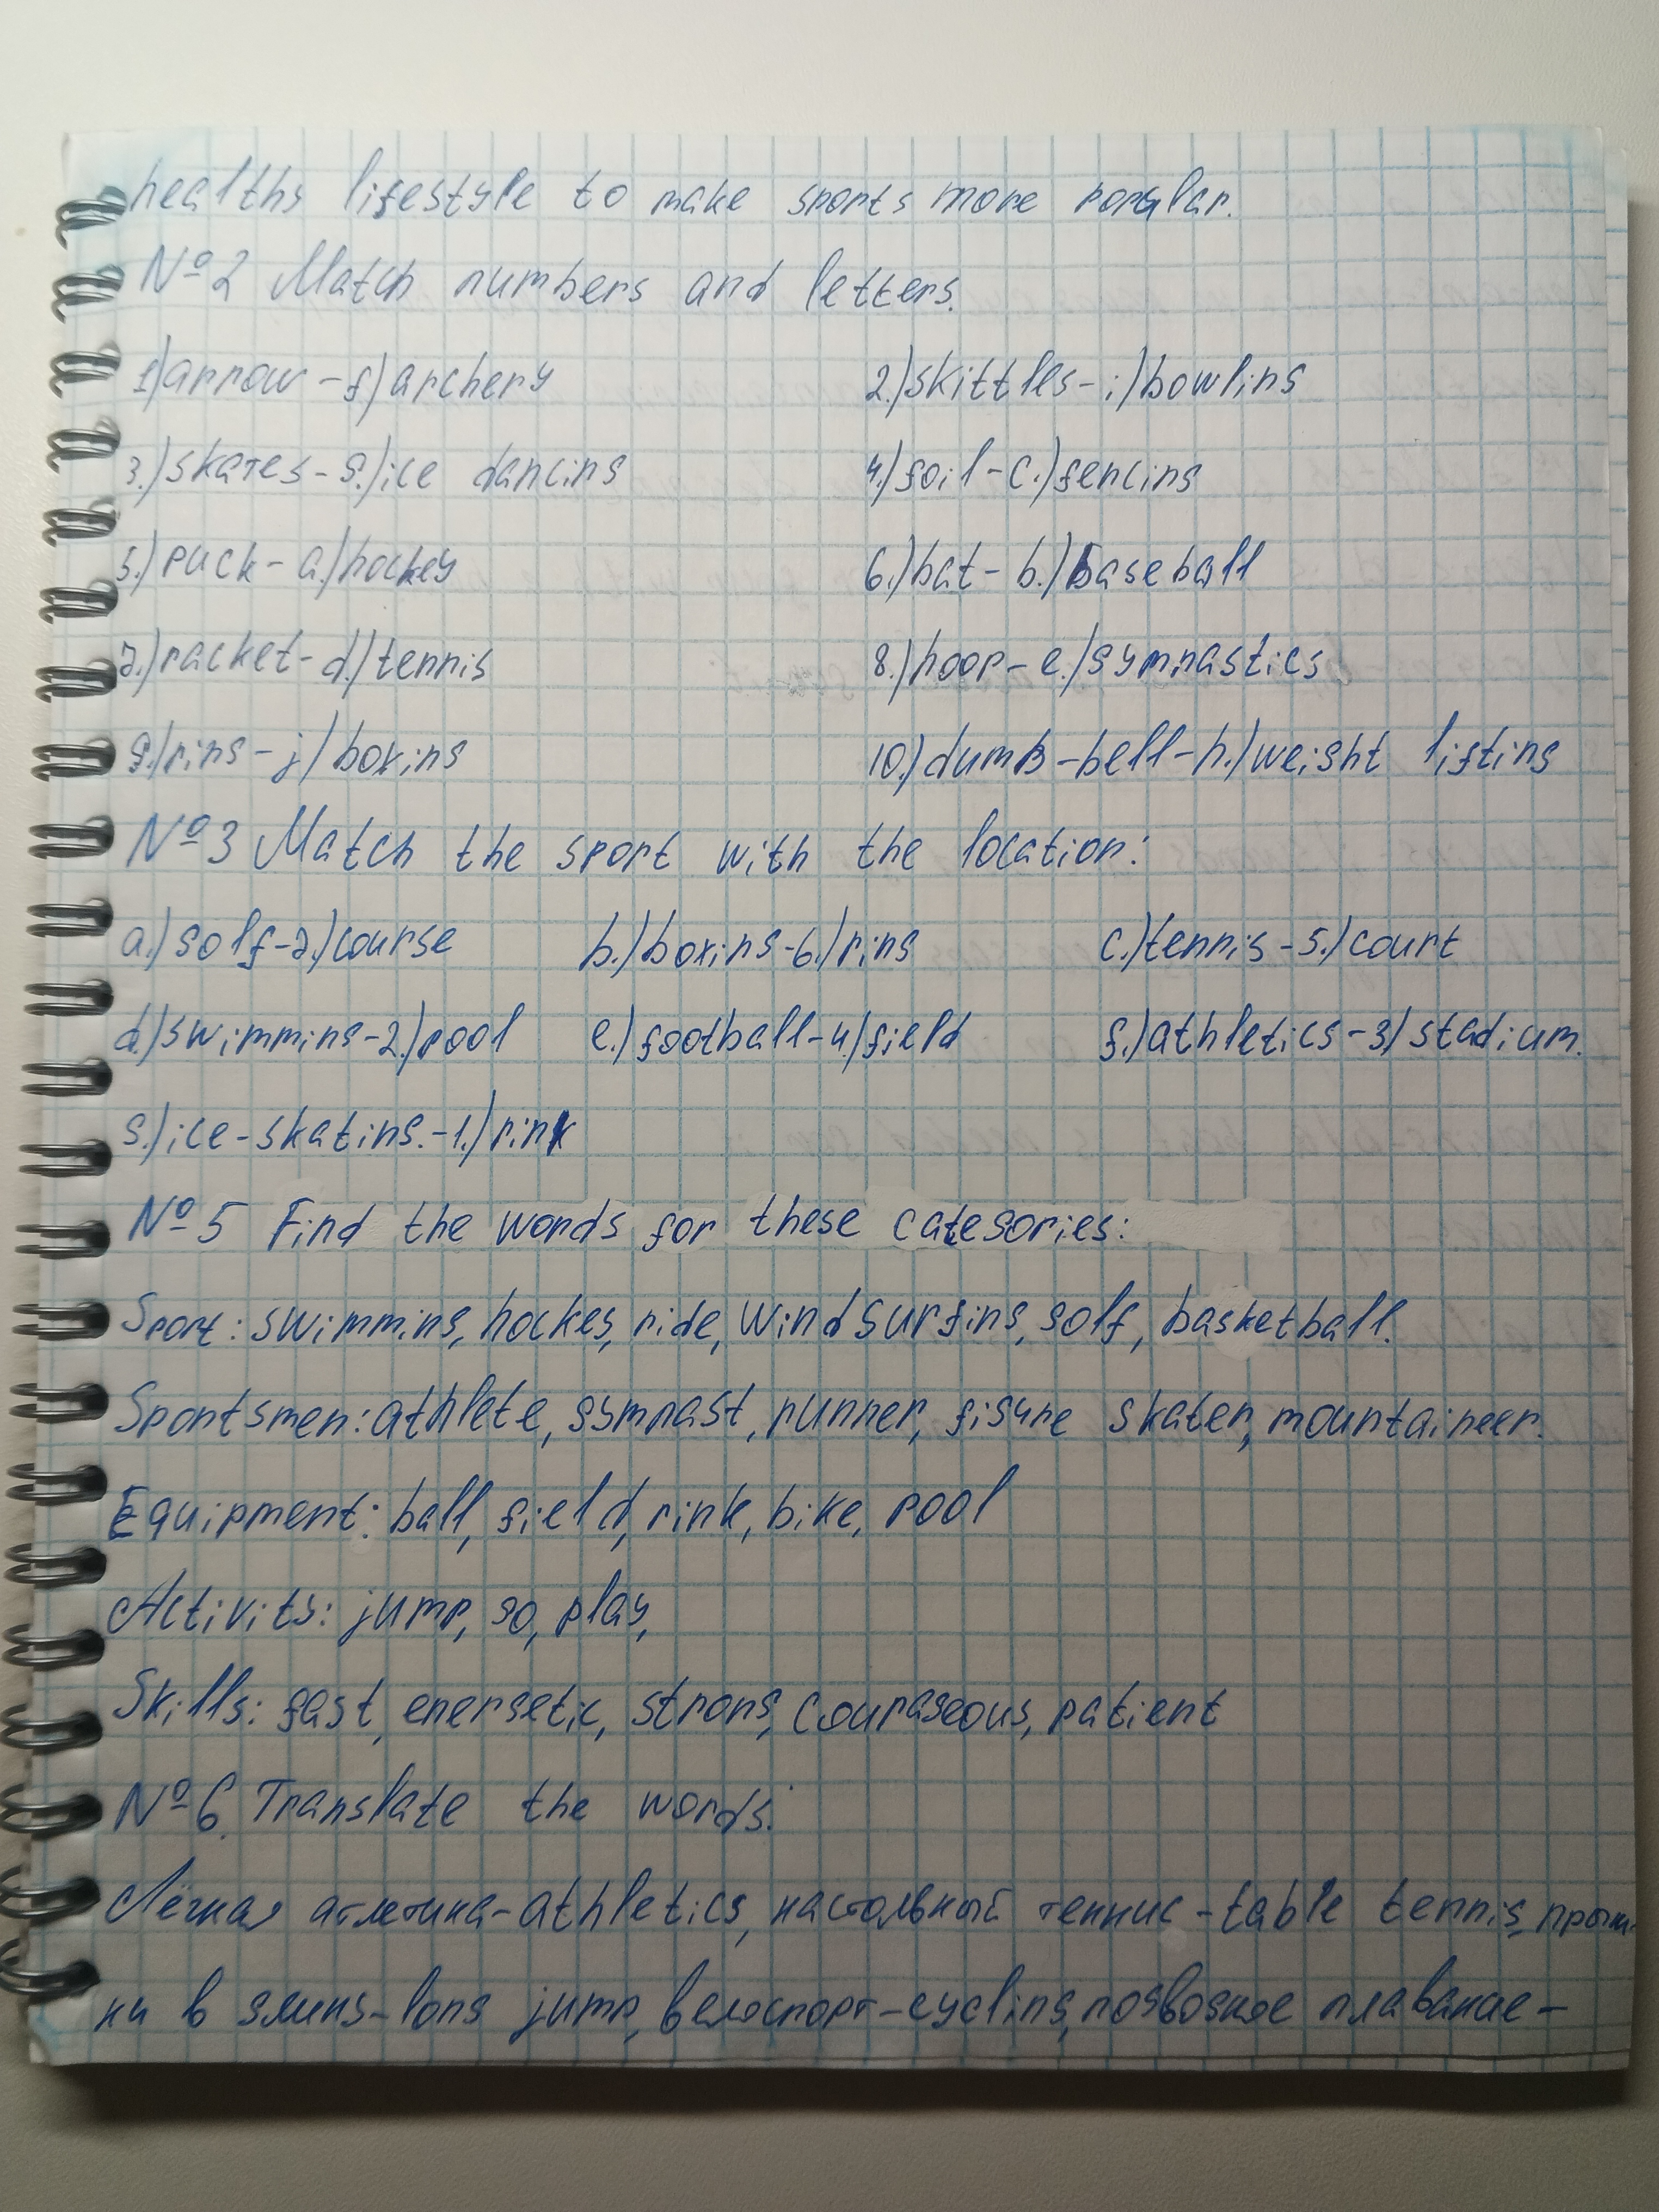 healthy lifestyle to make sports more popular.
№2 Match numbers and letters.
1)arrow-f)archery 2.)skittles-i)bowling
3.)skates-g.)ice dancing 4.)foil-c.)fencing
5.)puck-a.)hockey 6.)bat-b.)baseball
7.)racket-d.)tennis 8.)hoop-e.)gymnastics
9.)ring-j)boxing 10.)dumb-bell-h.)weight lifting
№3 Match the sport with the location:
a.)golf-7.)course b.)boxing-6.)ring c.)tennis-5.)court
d.)swimming-2.)pool e.)football-4.)field f.)athletics-3)stadium.
g.)ice-skating.-1.)rink
№5 Find the words for these categories:
Sport: swimming, hockey, ride, windsurfing, golf, basketball.
Sportsmen: athlete, gymnast, runner, figure skater, mountaineer.
Equipment: ball, field, rink, bike, pool
Activity: jump, go, play,
Skills: fast, energetic, strong, courageous, patient
№6. Translate the words:
Лёгкая атлетика-athletics, настольный теннис-table tennis, прыж-
ки в длину-long jump, велоспорт-cycling, подводное плавание-